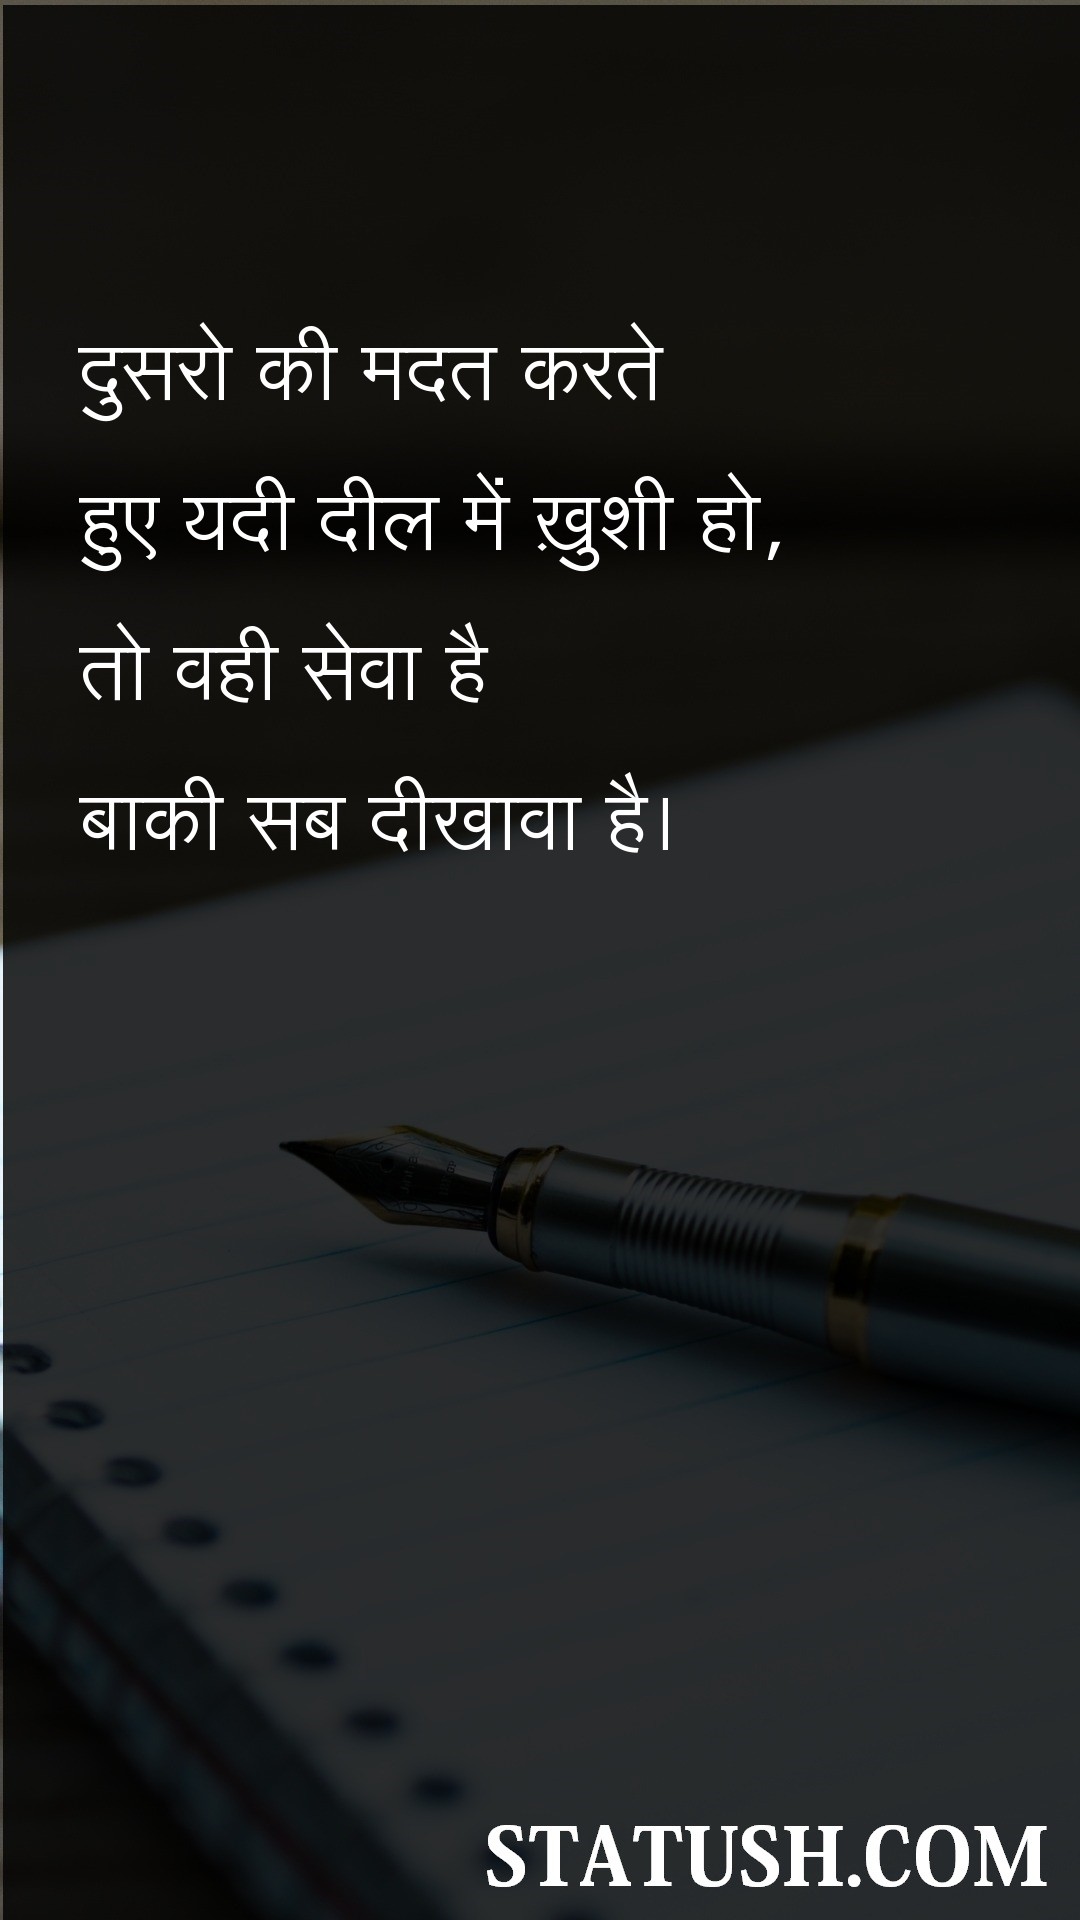 दुसरो की मदत करते
हुए यदी दील में ख़ुशी हो,
तो वही सेवा है
बाकी सब दीखावा है।
STATUSH.COM